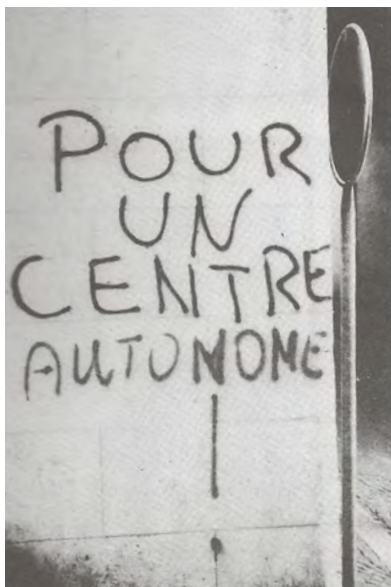 POUR
UN
CENTRE
AUTONOME
!